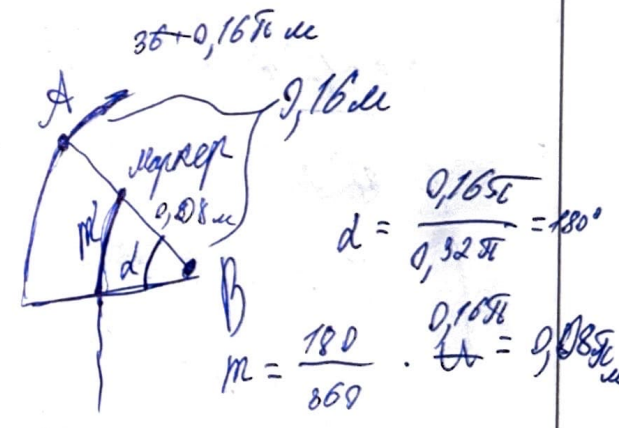 36+0,16π м
A
0,16м
маркер
0,08м
m
α
B
α = 0,16π / 0,32π = 180°
m = 180 / 360 · 0,16π = 0,08π м